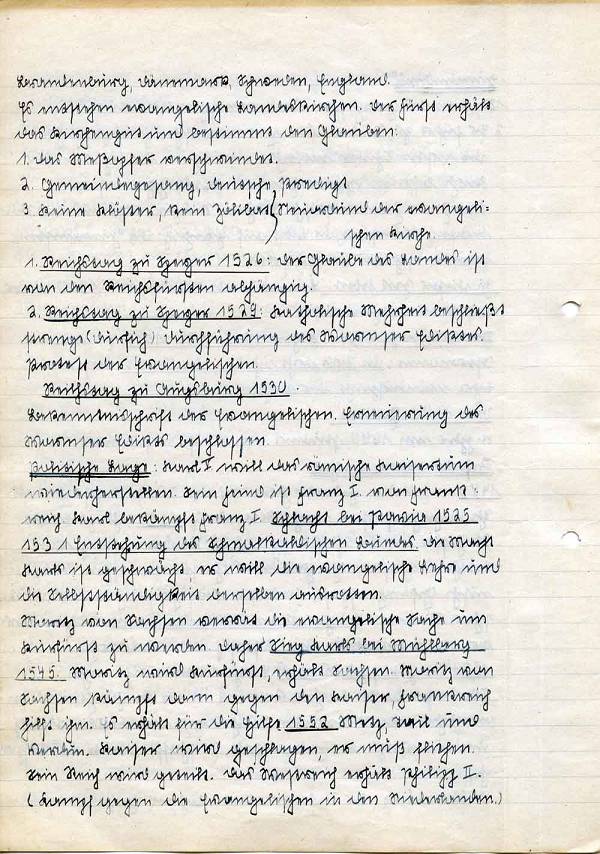 Brandenburg, Dänemark, Schweden, England.
Es entstehen evangelische Landeskirchen. Der Fürst erhält
das Kirchengut und bestimmt den Glauben.
1. Das Meßopfer verschwindet.
2. Gemeindegesang, deutsche Predigt
3. Keine Klöster, kein Zölibat} der evangeli-
schen Kirche
1. Reichstag zu Speyer 1526: Der Glaube des Landes ist
von den Reichsfürsten abhängig.
2. Reichstag zu Speyer 1529: Katholische Mehrheit beschließt
strenge Durchführung des Wormser Ediktes.
Protest der Evangelischen.
Reichstag zu Augsburg 1530.
Bekenntnisschrift der Evangelischen. Erneuerung des
Wormser Edikts beschlossen.
Politische Lage: Karl V will das römische Kaisertum
wiederherstellen. Sein Feind ist Franz I. von Frank-
reich. Karl bekämpft Franz I. Schlacht bei Pavia 1525
1531 Entstehung des Schmalkaldischen Bundes. Die Macht
Karls ist geschwächt er will die evangelische Lehre und
die Selbstständigkeit derselben ausrotten.
Moritz von Sachsen verrät die evangelische Sache um
Kurfürst zu werden. Daher Sieg Karls bei Mühlberg
1545. Moritz wird Kurfürst, erhält Sachsen. Moritz von
Sachsen kämpft dann gegen den Kaiser, Frankreich
hilft ihm. Es erhält für die Hilfe 1552 Metz, Tull und
Verdun. Kaiser wird geschlagen, er muß fliehen.
Sein Reich wird geteilt. Das Westreich erhält Philipp II.
(Kampf gegen die Evangelischen in den Niederlanden.)